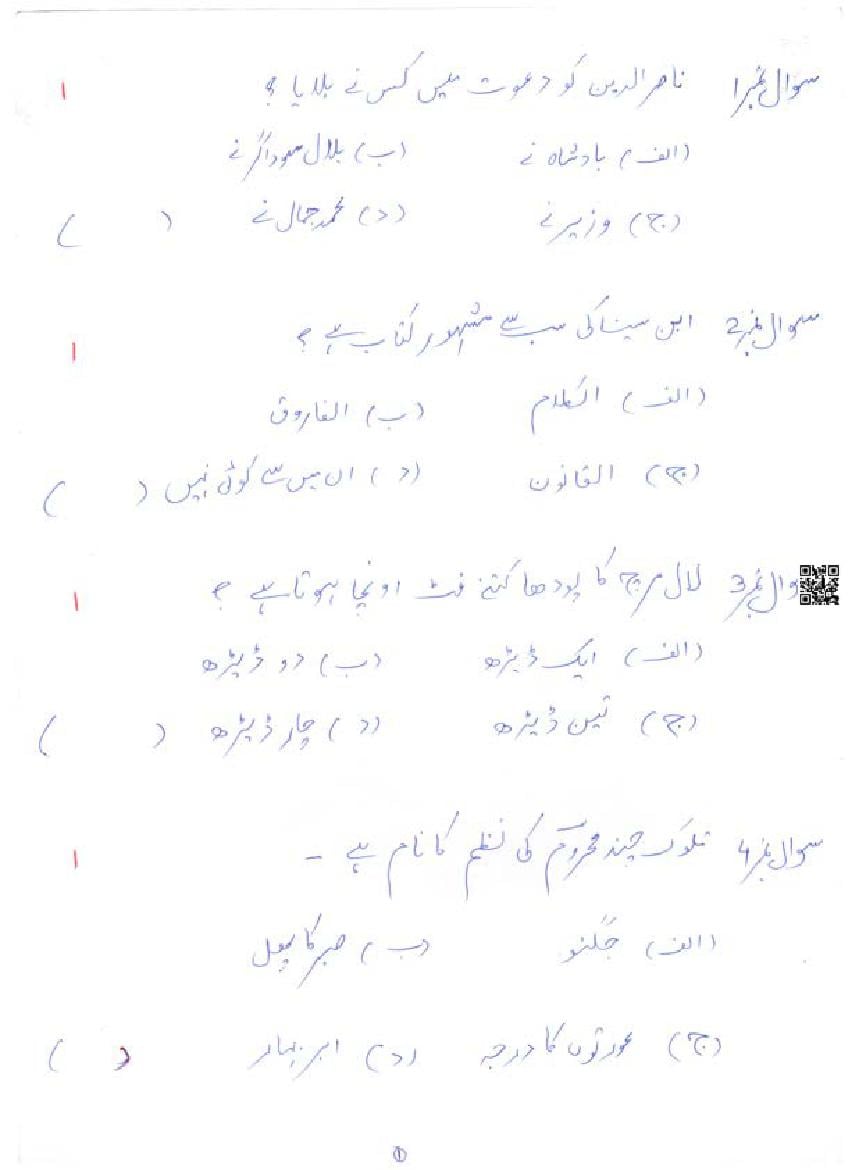 سوال نمبر1 ناصرالدین کو دعوت میں کس نے بلایا ؟ ۱
(الف) بادشاہ نے (ب) بلال سوداگر نے
(ج) وزیر نے (د) محمد جمال نے ( )
سوال نمبر2 ابن سینا کی سب سے مشہور کتاب ہے ؟ ۱
(الف) الکلام (ب) الفاروق
(ج) القانون (د) ان میں سے کوئی نہیں ( )
وال نمبر3 لال مرچ کا پودھا کتنے فٹ اونچا ہوتا ہے ؟ ۱
(الف) ایک ڈیڑھ (ب) دو ڈیڑھ
(ج) تین ڈیڑھ (د) چار ڈیڑھ ( )
سوال نمبر4 تلوک چند محروم کی نظم کا نام ہے ۔ ۱
(الف) جگنو (ب) صبر کا پھل
(ج) عورتوں کا درجہ (د) ابر بہار ( )
①